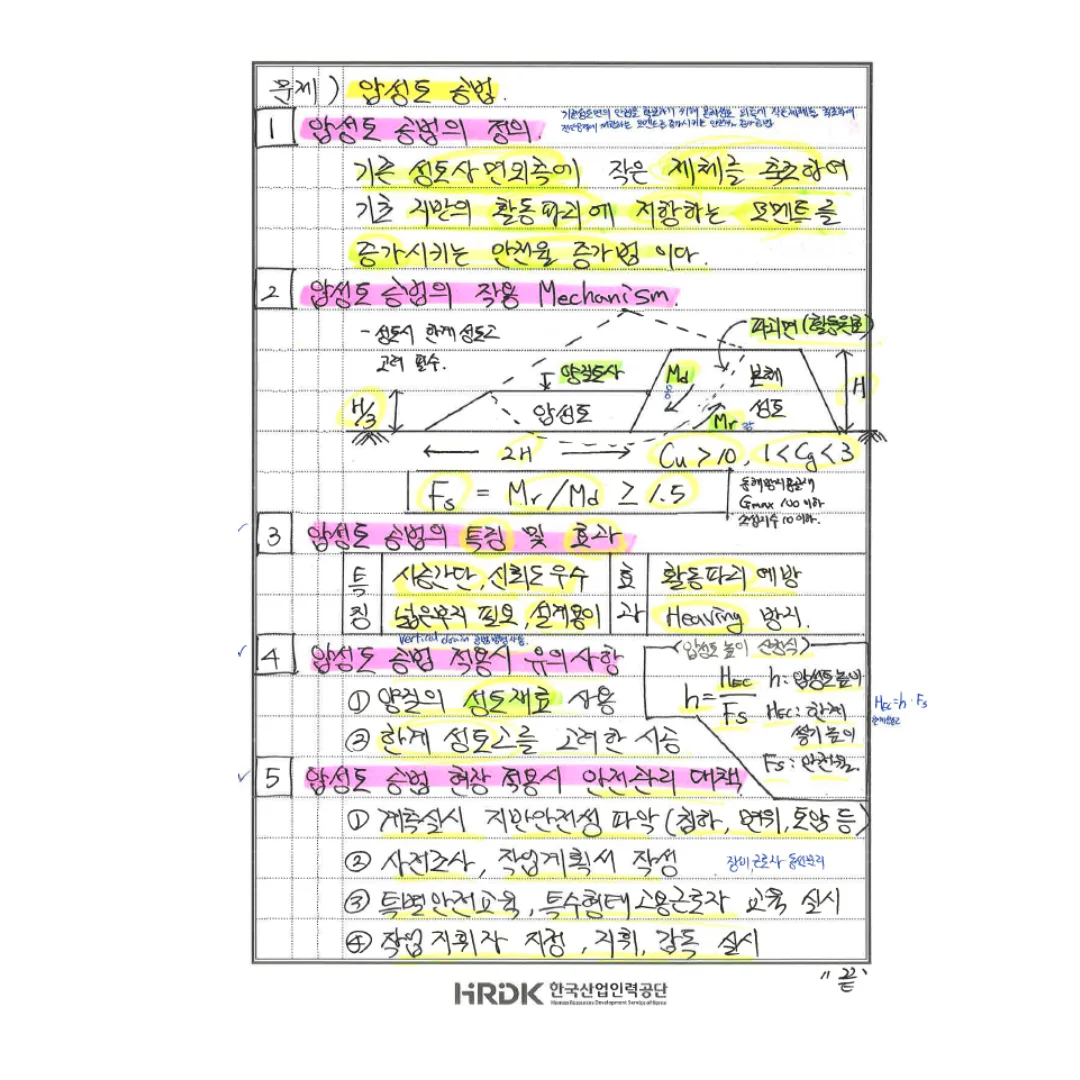 문제) 압성토 공법.
1 압성토 공법의 정의.
기존 성토사면외측에 작은 제체를 축조하여
기초 지반의 활동파괴에 저항하는 모멘트를
증가시키는 안전율 증가법 이다.
2 압성토 공법의 작용 Mechanism.
- 성토시 한계성토고
고려 필수.
파괴면(활동원호)
양질토사
Md
본체
성토
H
H/3
압성토
Mr
2H
Cu > 10, 1 < Cg < 3
Fs = Mr/Md ≥ 1.5
Gmax 100 이하
소성지수 10 이하.
3 압성토 공법의 특징 및 효과
특징
시공간단, 신뢰도 우수
넓은부지 필요, 설계용이
효과
활동파괴 예방
Heaving 방지.
4 압성토 공법 적용시 유의사항
Vertical drain 공법병행사용.
① 양질의 성토재료 사용
② 한계 성토고를 고려한 시공
(압성토 높이 산정식)
h = HEC / Fs
h: 압성토높이
HEC: 한계
쌓기높이
Fs: 안전율.
HEC = h · Fs
한계성토고
5 압성토 공법 현장 적용시 안전관리 대책
① 계측실시 지반안전성 파악 (침하, 변위, 토압 등)
② 사전조사, 작업계획서 작성
장비, 근로사 동선분리
③ 특별안전교육, 특수형태고용근로자 교육 실시
④ 작업지휘자 지정, 지휘, 감독 실시
"끝"
HRDK 한국산업인력공단
Human Resources Development Service of Korea